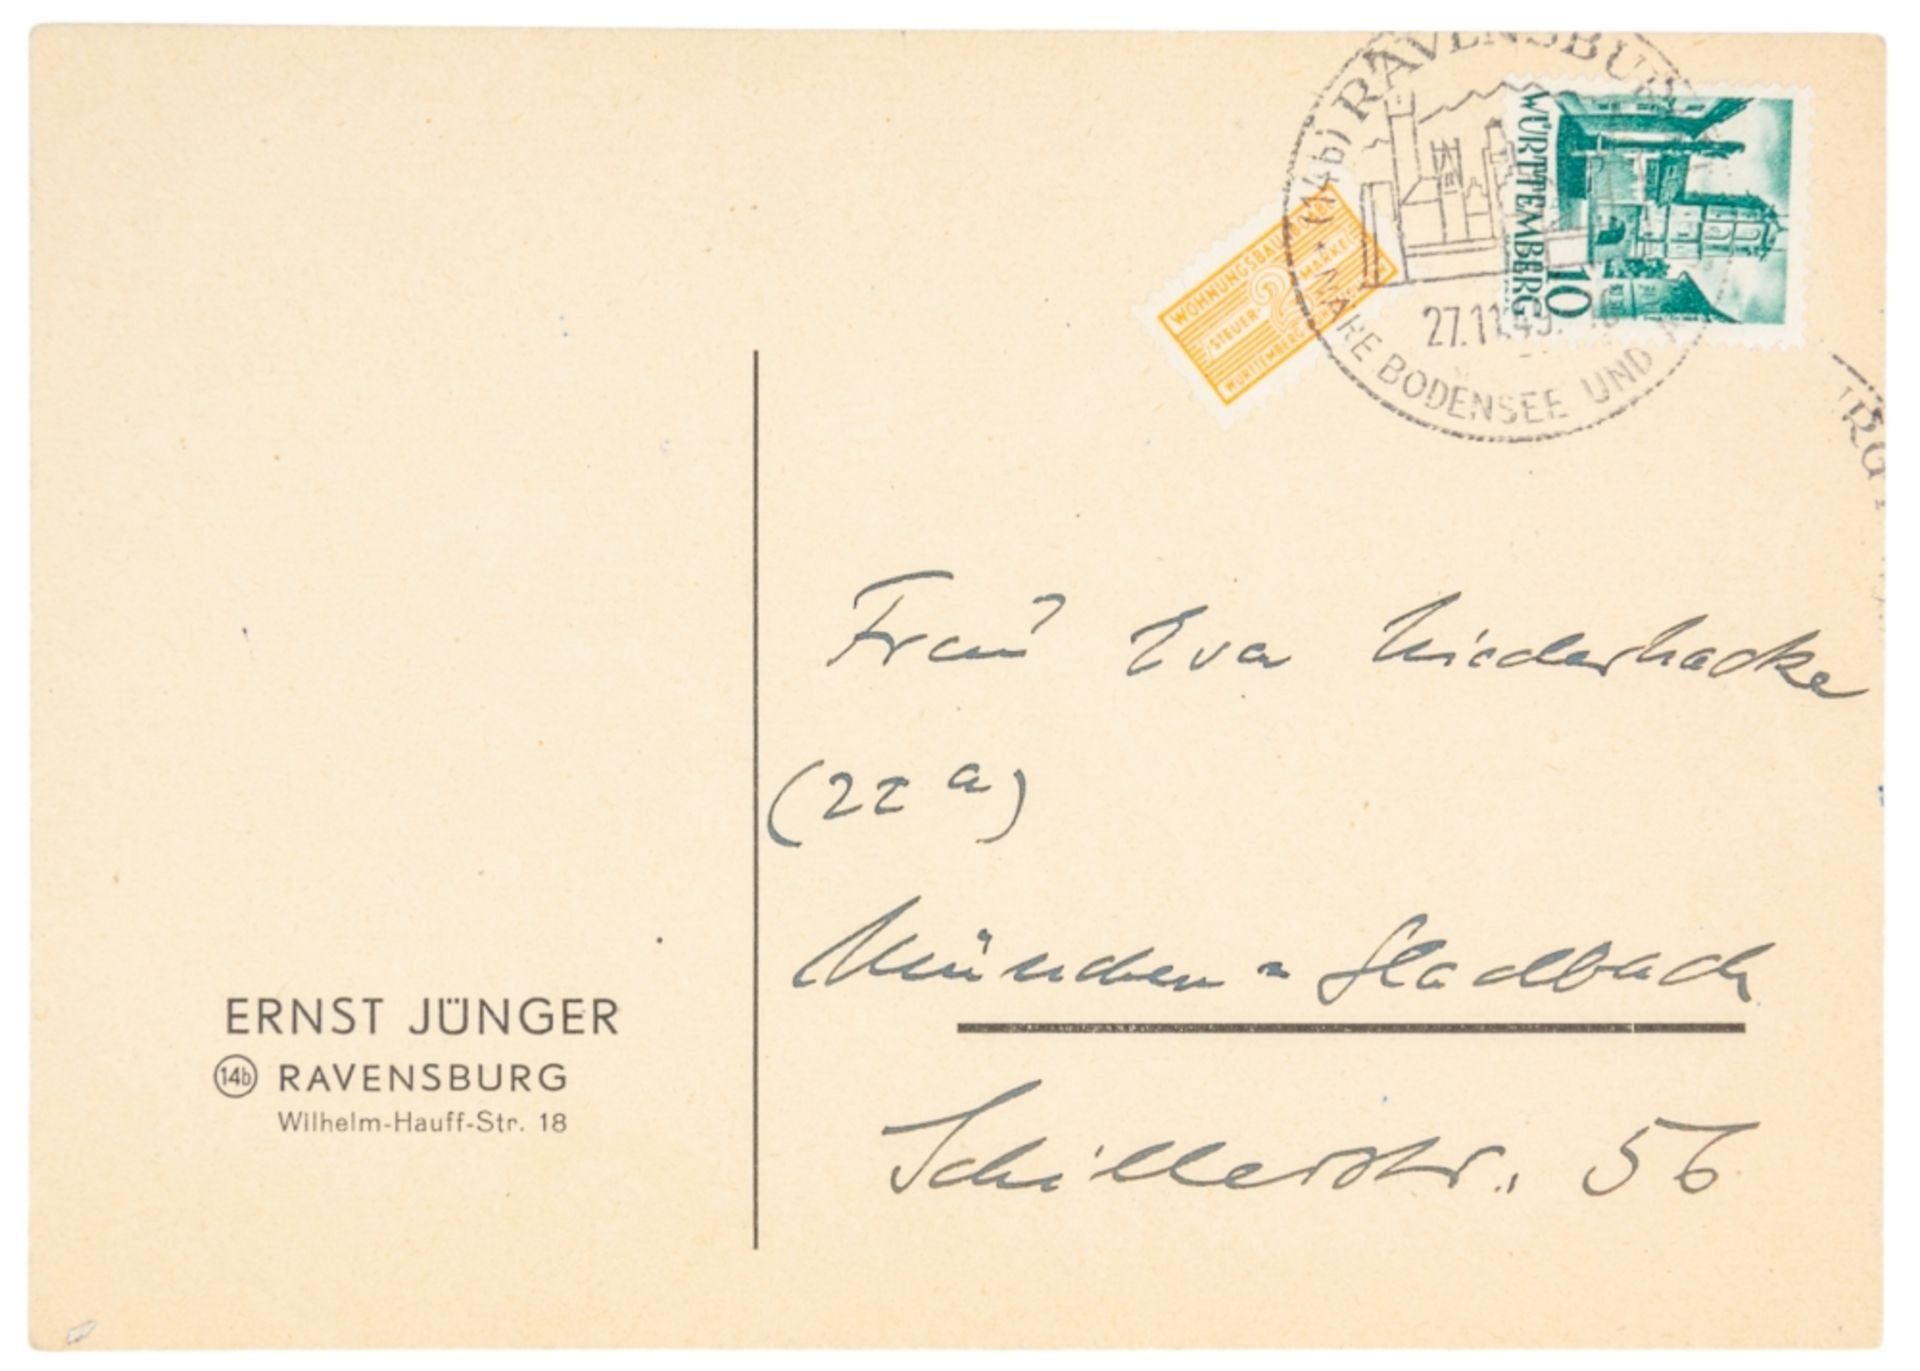 (14b) RAVENSBUR
WÜRTTEMBERG
10
WOHNUNGSBAU
STEUER- 2 MARKE
WÜRTTEMBERG
27.11.49.
BODENSEE UND
RG
Frau Eva Niederhacke
(22 a)
München = Gladbach
Schillerstr. 56
ERNST JÜNGER
14b RAVENSBURG
Wilhelm-Hauff-Str. 18